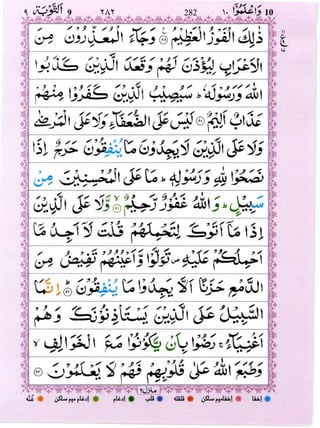 ٩ اَلتَّوْبَة 9 ٢٨٢ 282 ١٠ وَاعْلَمُوْٓا 10
ذٰلِكَ الْفَوْزُ الْعَظِيْمُ ﴿٨٩﴾ وَجَآءَ الْمُعَذِّرُوْنَ مِنَ
الْاَعْرَابِ لِيُؤْذَنَ لَهُمْ وَقَعَدَ الَّذِيْنَ كَذَبُوا
اللّٰهَ وَرَسُوْلَهٗ ؕ سَيُصِيْبُ الَّذِيْنَ كَفَرُوْا مِنْهُمْ
عَذَابٌ اَلِيْمٌ ﴿٩٠﴾ لَيْسَ عَلَى الضُّعَفَآءِ وَلَا عَلَى الْمَرْضٰى
وَلَا عَلَى الَّذِيْنَ لَا يَجِدُوْنَ مَا يُنْفِقُوْنَ حَرَجٌ اِذَا
نَصَحُوْا لِلّٰهِ وَرَسُوْلِهٖ ؕ مَا عَلَى الْمُحْسِنِيْنَ مِنْ
سَبِيْلٍ ؕ وَاللّٰهُ غَفُوْرٌ رَّحِيْمٌ ﴿٩١﴾ وَّلَا عَلَى الَّذِيْنَ
اِذَا مَآ اَتَوْكَ لِتَحْمِلَهُمْ قُلْتَ لَآ اَجِدُ مَآ
اَحْمِلُكُمْ عَلَيْهِ ۪ تَوَلَّوْا وَّاَعْيُنُهُمْ تَفِيْضُ مِنَ
الدَّمْعِ حَزَنًا اَلَّا يَجِدُوْا مَا يُنْفِقُوْنَ ﴿٩٢﴾ اِنَّمَا
السَّبِيْلُ عَلَى الَّذِيْنَ يَسْتَاْذِنُوْنَكَ وَهُمْ
اَغْنِيَآءُ ۚ رَضُوْا بِاَنْ يَّكُوْنُوْا مَعَ الْخَوَالِفِ ۙ
وَطَبَعَ اللّٰهُ عَلٰى قُلُوْبِهِمْ فَهُمْ لَا يَعْلَمُوْنَ ﴿٩٣﴾
منزل٢
اِخفا اِخفامیم ساکن قلقلہ قلب اِدغام اِدغام میم ساکن غُنّہ